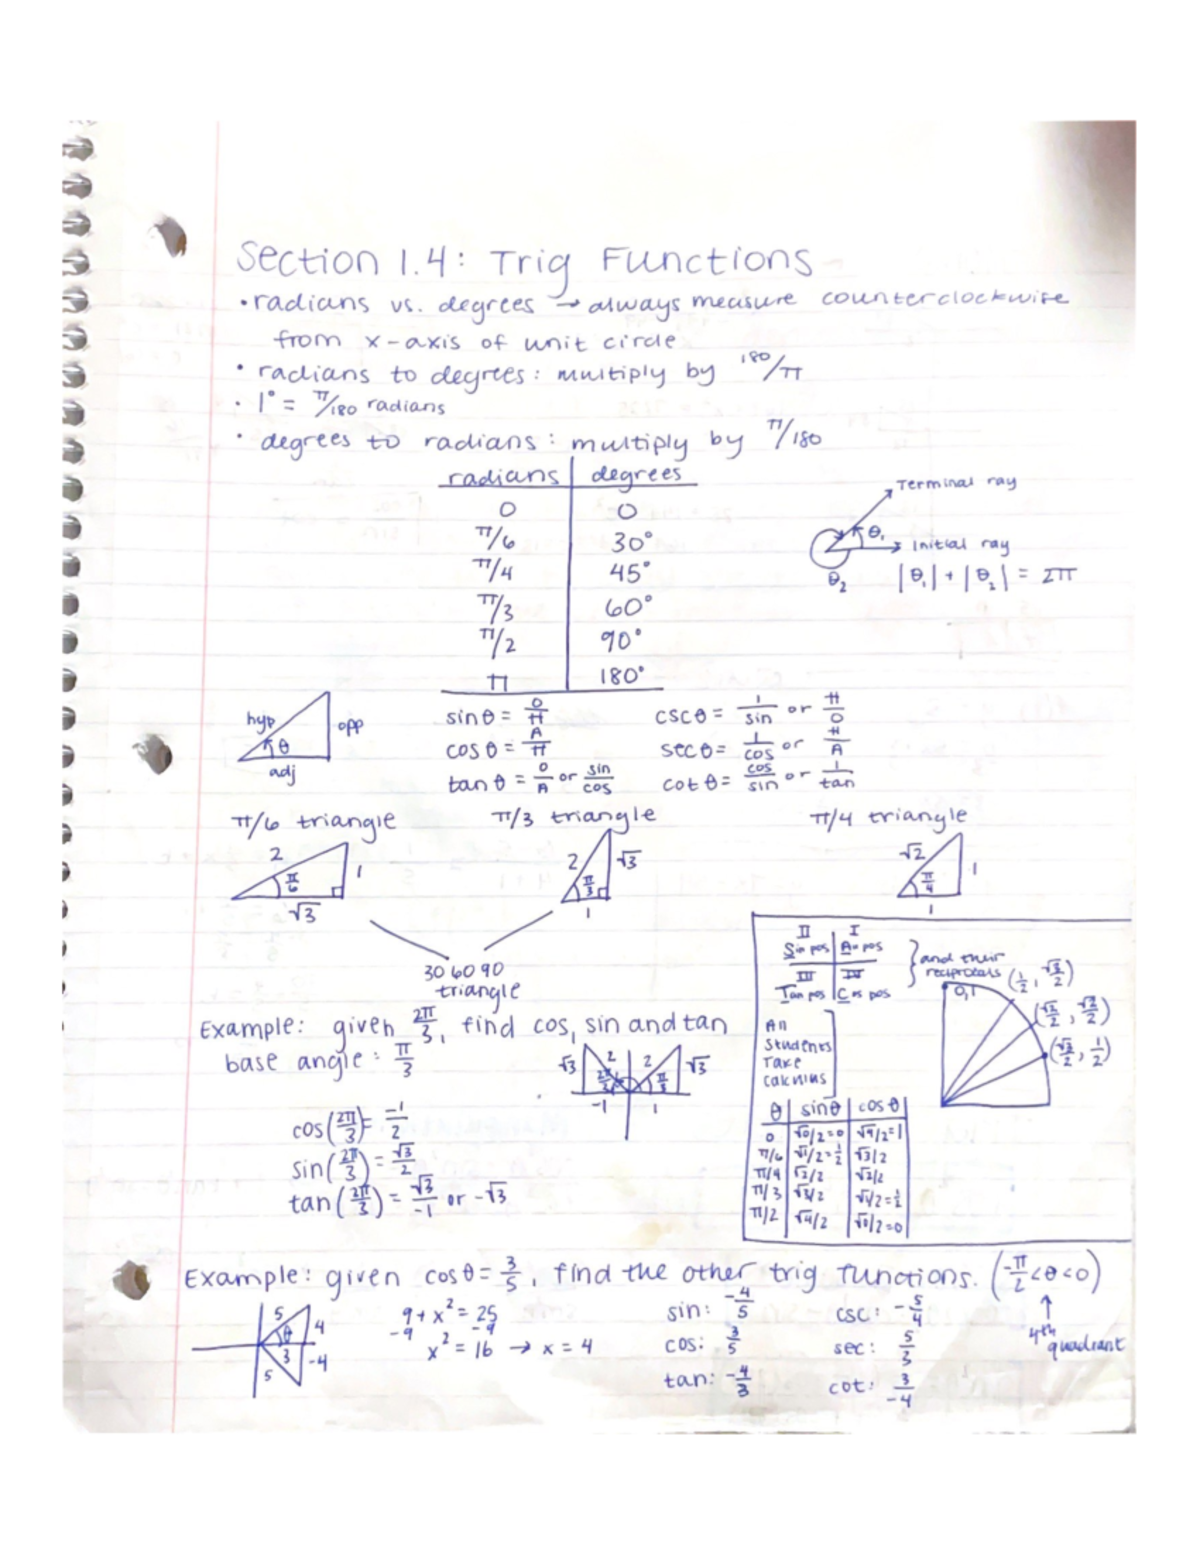 Section 1.4: Trig Functions
• radians vs. degrees → always measure counterclockwise
from x-axis of unit circle
• radians to degrees: multiply by 180/π
• 1° = π/180 radians
• degrees to radians: multiply by π/180
radians | degrees
0 | 0
π/6 | 30°
π/4 | 45°
π/3 | 60°
π/2 | 90°
π | 180°
Terminal ray
θ₁
Initial ray
θ₂
|θ₁| + |θ₂| = 2π
hyp
opp
θ
adj
sinθ = O/H
cosθ = A/H
tanθ = O/A or sin/cos
cscθ = 1/sin or H/O
secθ = 1/cos or H/A
cotθ = cos/sin or 1/tan
π/6 triangle
2
1
π/6
√3
π/3 triangle
2
√3
π/3
1
π/4 triangle
√2
1
π/4
1
30 60 90
triangle
II | I
Sin pos | All pos
III | IV
Tan pos | Cos pos
} and their
reciprocals
(1/2, √3/2)
0,1
(√2/2, √2/2)
(√3/2, 1/2)
All
Students
Take
Calculus
θ | sinθ | cosθ
0 | √0/2=0 | √4/2=1
π/6 | √1/2=1/2 | √3/2
π/4 | √2/2 | √2/2
π/3 | √3/2 | √1/2=1/2
π/2 | √4/2 | √0/2=0
Example: given 2π/3, find cos, sin and tan
base angle: π/3
√3
2
2
√3
2π/3
π/3
-1
1
cos(2π/3) = -1/2
sin(2π/3) = √3/2
tan(2π/3) = √3/-1 or -√3
Example: given cosθ = 3/5, find the other trig functions. (-π/2 < θ < 0)
↑
4th
quadrant
5
4
θ
3
-4
5
9 + x² = 25
-9 -9
x² = 16 → x = 4
sin: -4/5
cos: 3/5
tan: -4/3
csc: -5/4
sec: 5/3
cot: 3/-4